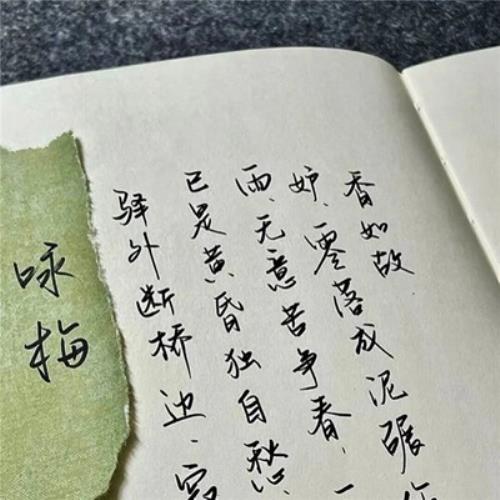 咏梅
驿外断桥边、
已是黄昏独自愁
雨、无意苦争春,一
妒、零落成泥碾
香如故